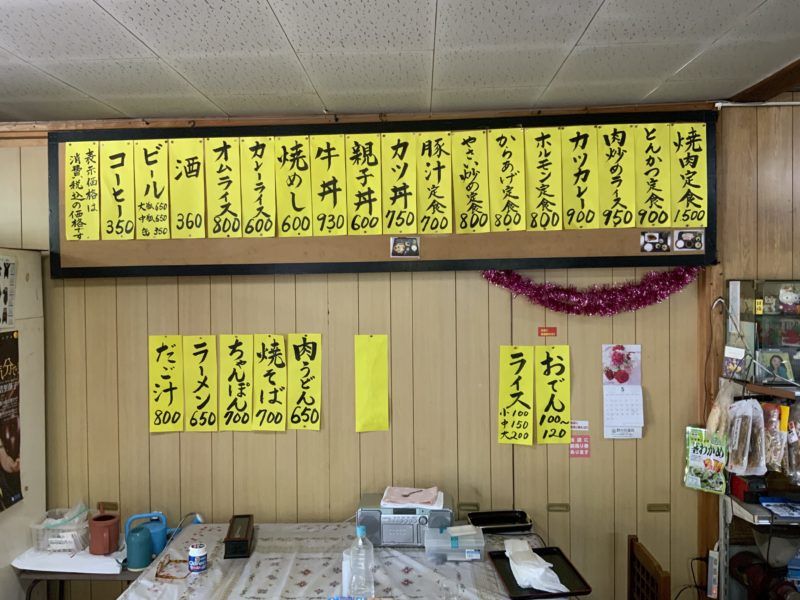 焼肉定食 1500
とんかつ定食 900
肉炒めライス 950
カツカレー 900
ホルモン定食 800
からあげ定食 800
やさい炒め定食 800
豚汁定食 700
カツ丼 750
親子丼 600
牛丼 930
焼めし 600
カレーライス 600
オムライス 800
酒 360
ビール 大瓶650 中瓶650 缶350
コーヒー 350
表示価格は
消費税込の価格です
おでん 100〜120
ライス 小100 中150 大200
肉うどん 650
焼そば 700
ちゃんぽん 700
ラーメン 650
だご汁 800
わかめ
5